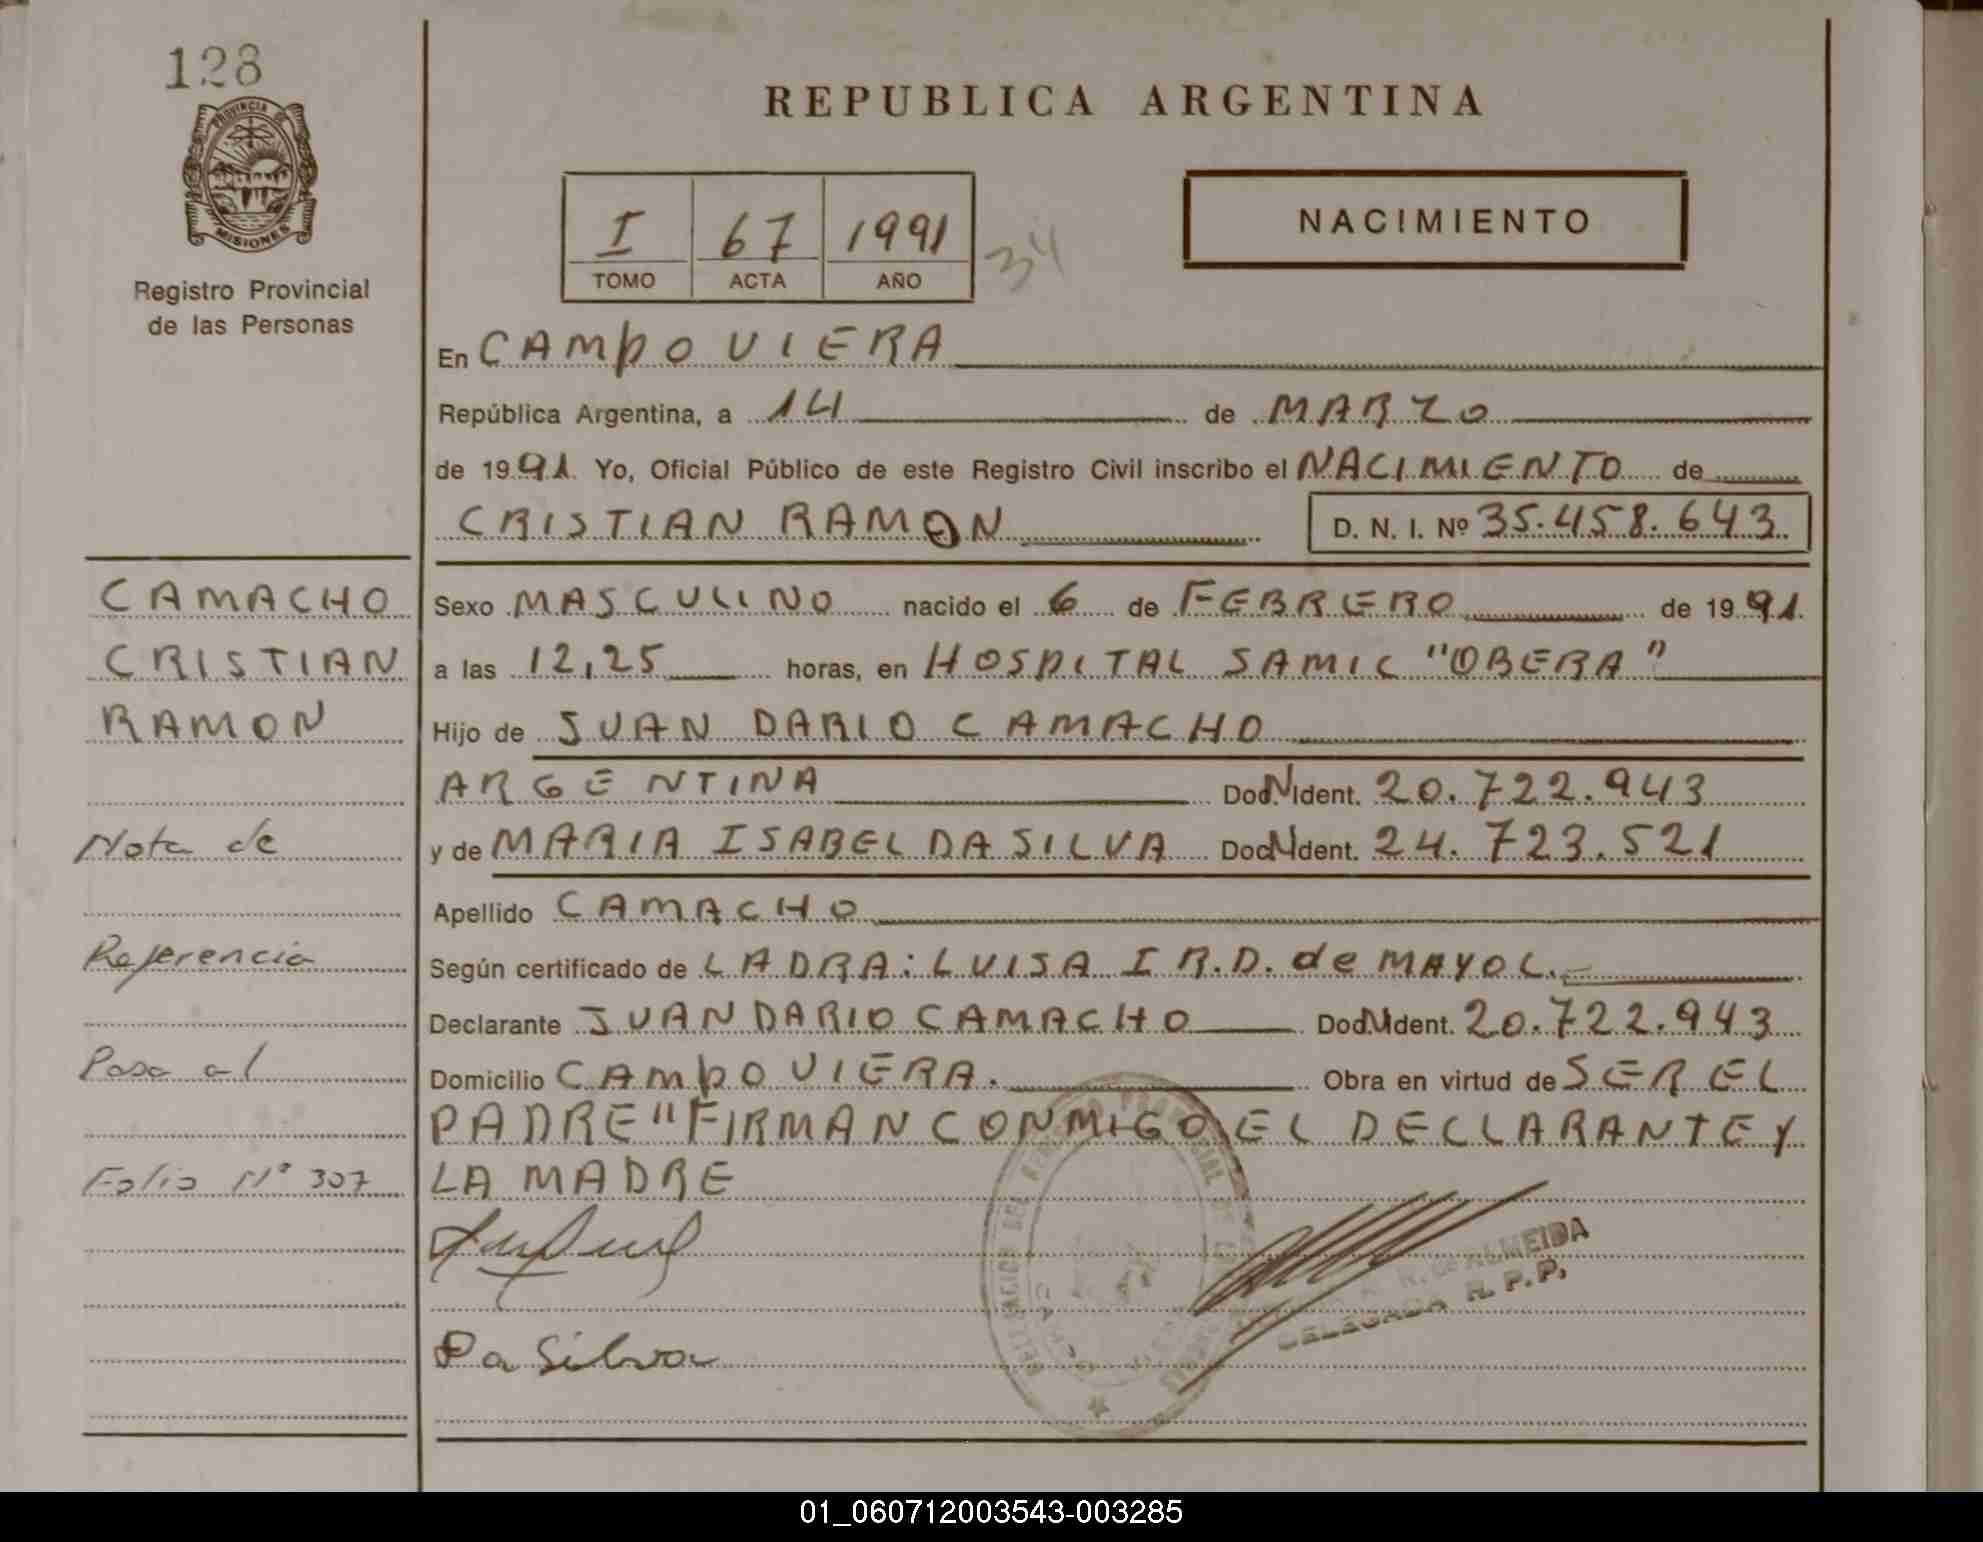 128
PROVINCIA DE
MISIONES
Registro Provincial
de las Personas
REPUBLICA ARGENTINA
I 67 1991 34
TOMO ACTA AÑO
NACIMIENTO
En CAMPO VIERA
República Argentina, a 14 de MARZO
de 1991. Yo, Oficial Público de este Registro Civil inscribo el NACIMIENTO de
CRISTIAN RAMON D. N. I. Nº 35.458.643
CAMACHO
CRISTIAN
RAMON
Nota de
Referencia
Pasa al
Folio Nº 307
Sexo MASCULINO nacido el 6 de FEBRERO de 1991.
a las 12,25 horas, en HOSPITAL SAMIC "OBERA"
Hijo de JUAN DARIO CAMACHO
ARGENTINA Doc.N.Ident. 20.722.943
y de MARIA ISABEL DA SILVA Doc.N.Ident. 24.723.521
Apellido CAMACHO
Según certificado de LA DRA: LUISA I R.D. de MAYOL.
Declarante JUAN DARIO CAMACHO Doc.N.Ident. 20.722.943
Domicilio CAMPO VIERA. Obra en virtud de SER EL
PADRE "FIRMAN CONMIGO EL DECLARANTE Y
LA MADRE
Da Silva
R. de ALMEIDA
DELEGADA R. P. P.
01_060712003543-003285